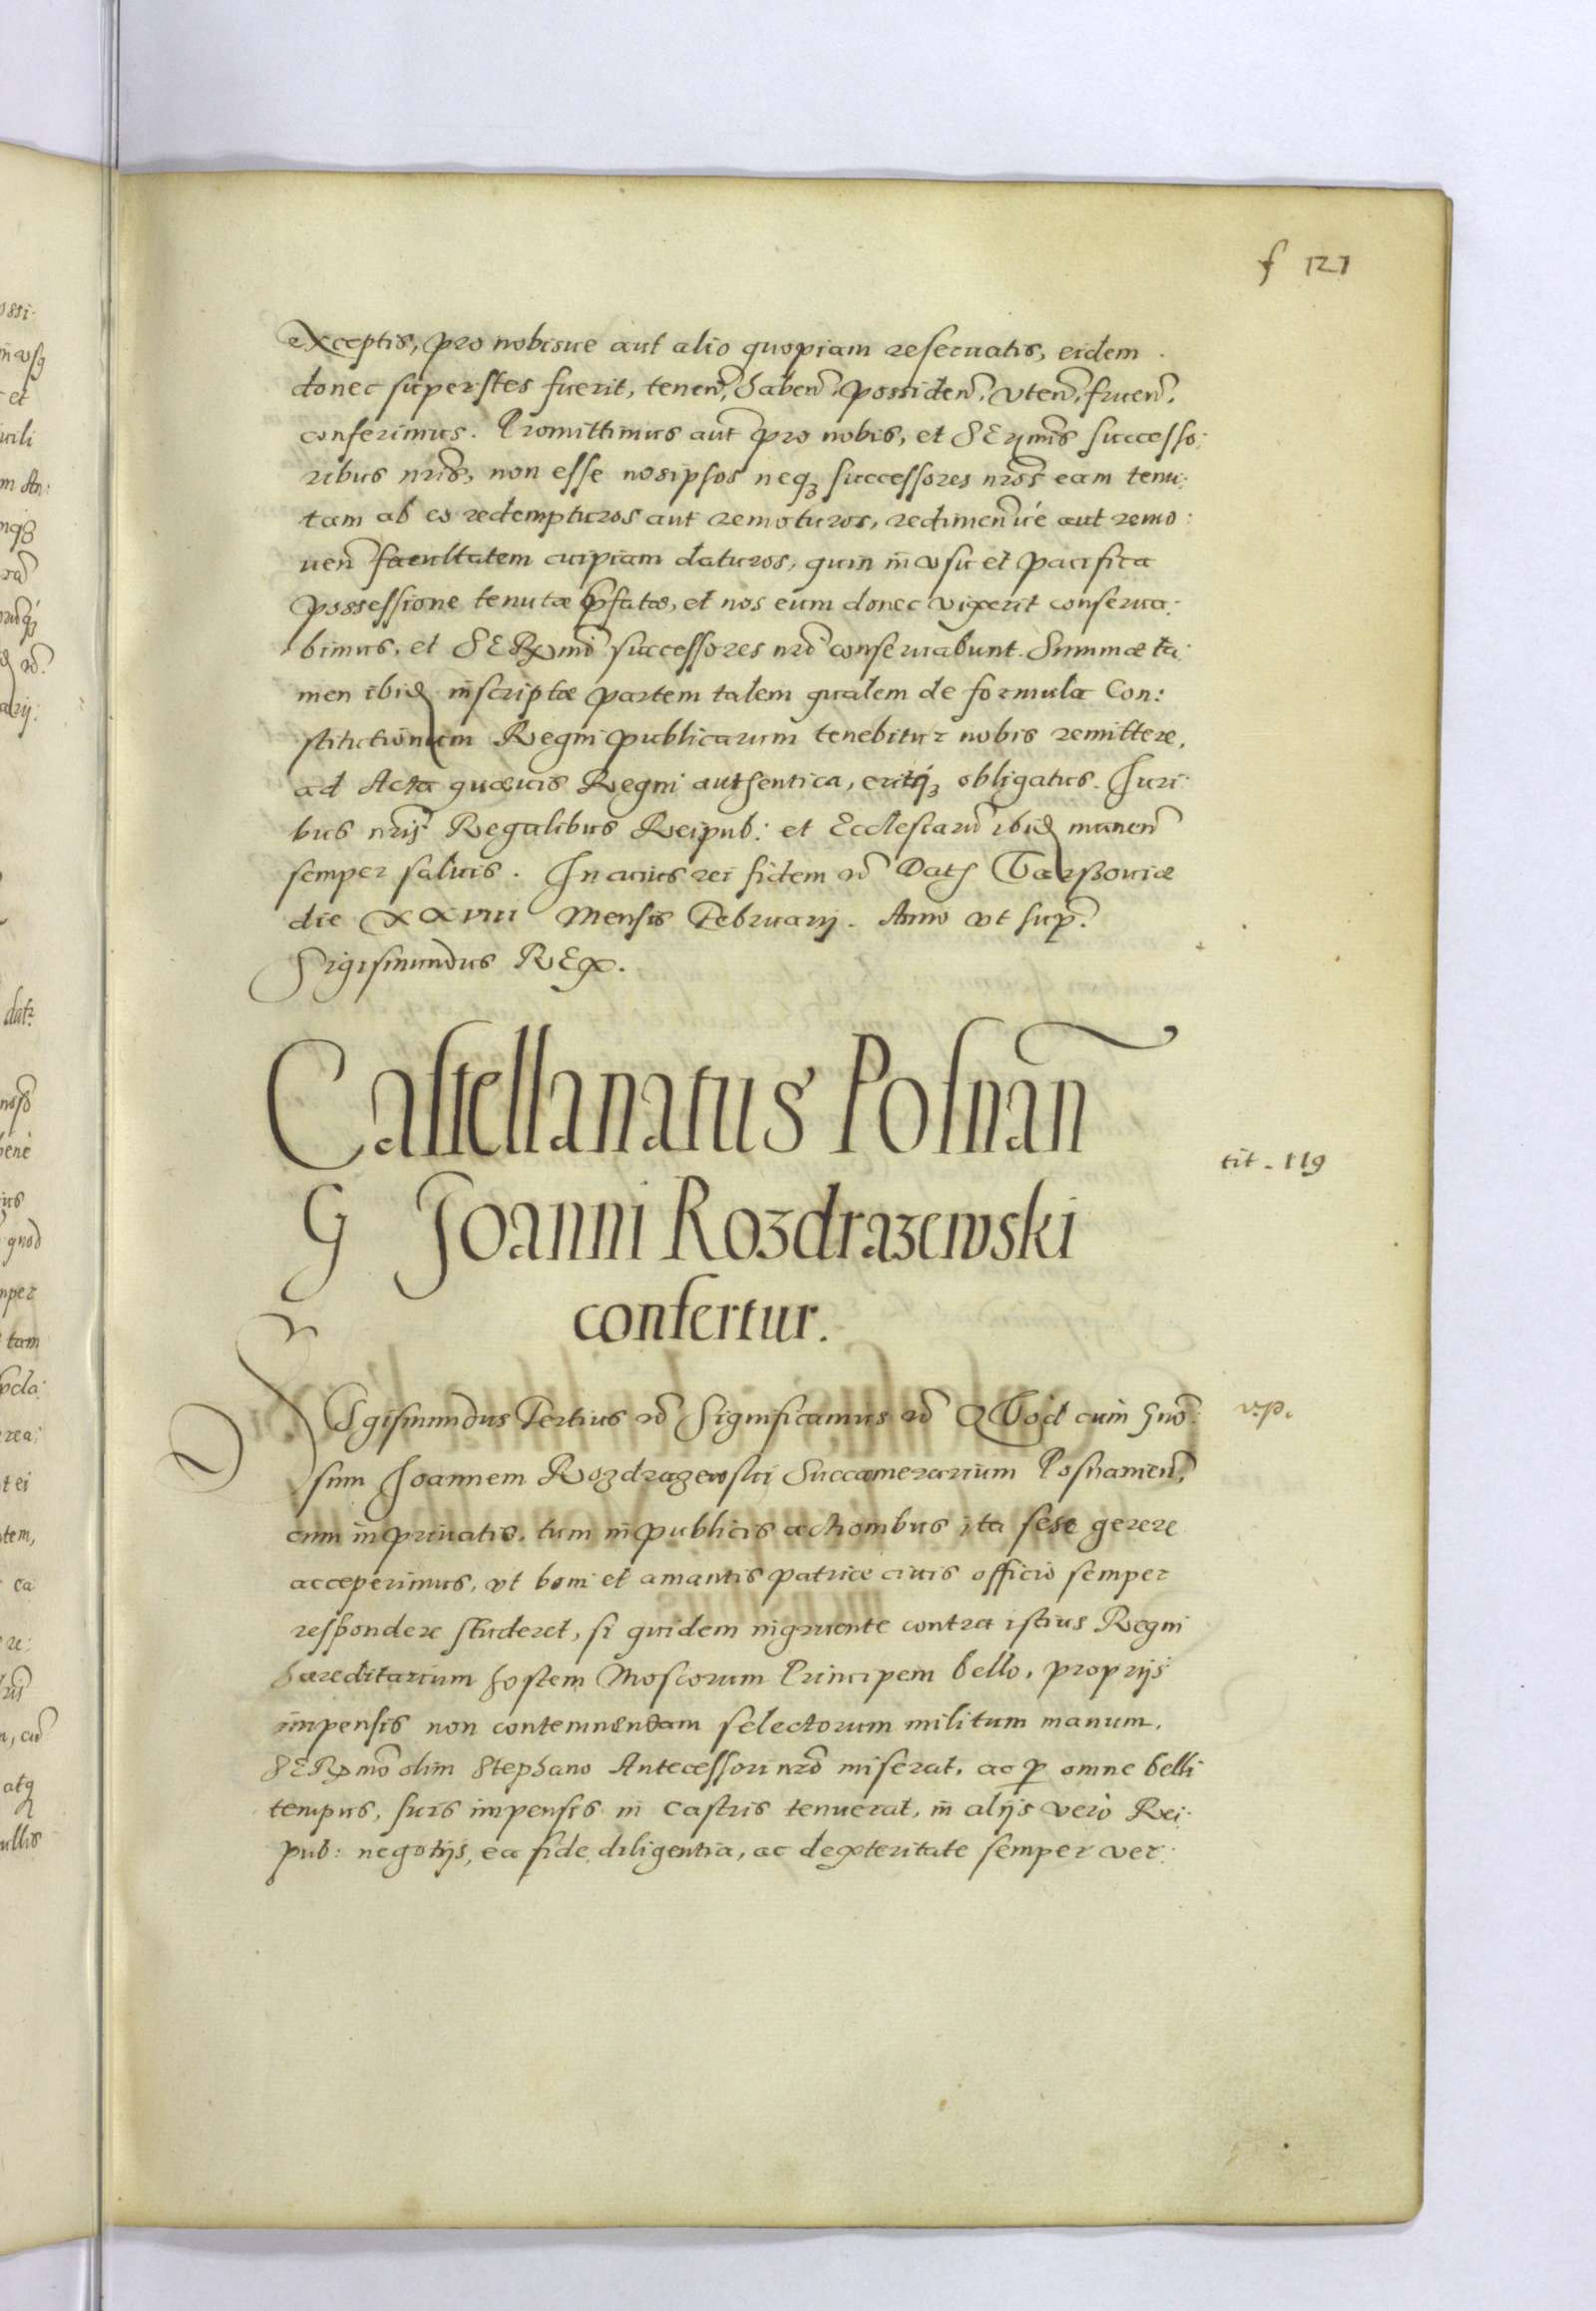 f 121
exceptis, pro nobisue aut alio quopiam reseruatis, eidem
donec superstes fuerit, tenen, haben, possiden, vten, fruen,
conferimus. Promittimus aut pro nobis, et SERmis successo:
ribus nris, non esse nosipsos neqꝫ successores nros eam tenu:
tam ab eo redempturos aut remoturos, redimen ue aut remo:
uen facultatem cuipiam daturos, quin in vsu et pacifica
possessione tenutæ pfatæ, et nos eum donec vixerit conserua:
bimus, et SERmi successores nri conseruabunt. Summæ ta:
men ibid inscriptæ partem talem qualem de formula Con:
stitutionum Regni publicarum tenebitur nobis remittere,
ad Acta quæuis Regni authentica, eritqꝫ obligatus. Iuri:
bus nris Regalibus Reipub: et Ecclesiaru ibid manen
semper saluis. In cuius rei fidem etc Dat Varssouiæ
die XXVIII Mensis Februarij. Anno vt sup.
Sigismundus REX.
Castellanatus Posnan
G Joanni Rozdrazewski
confertur.
tit. 119
SIgismundus Tertius etc Significamus etc QVod cum Gno:
v.p.
sum Joannem Rozdrazewski Succamerarium Posnanien,
cum in priuatis, tum in publicis actionibus ita sese gerere
acceperimus, vt boni et amantis patriæ ciuis officio semper
respondere studeret, si quidem ingruente contra istius Regni
hæreditarium hostem Moscorum Principem bello, proprijs
impensis non contemnendam selectorum militum manum,
SERmo olim Stephano Antecessori nro miserat, ac p omne belli
tempus, suis impensis in castris tenuerat, in alijs vero Rei:
pub: negotijs, ea fide, diligentia, ac dexteritate semper ver: